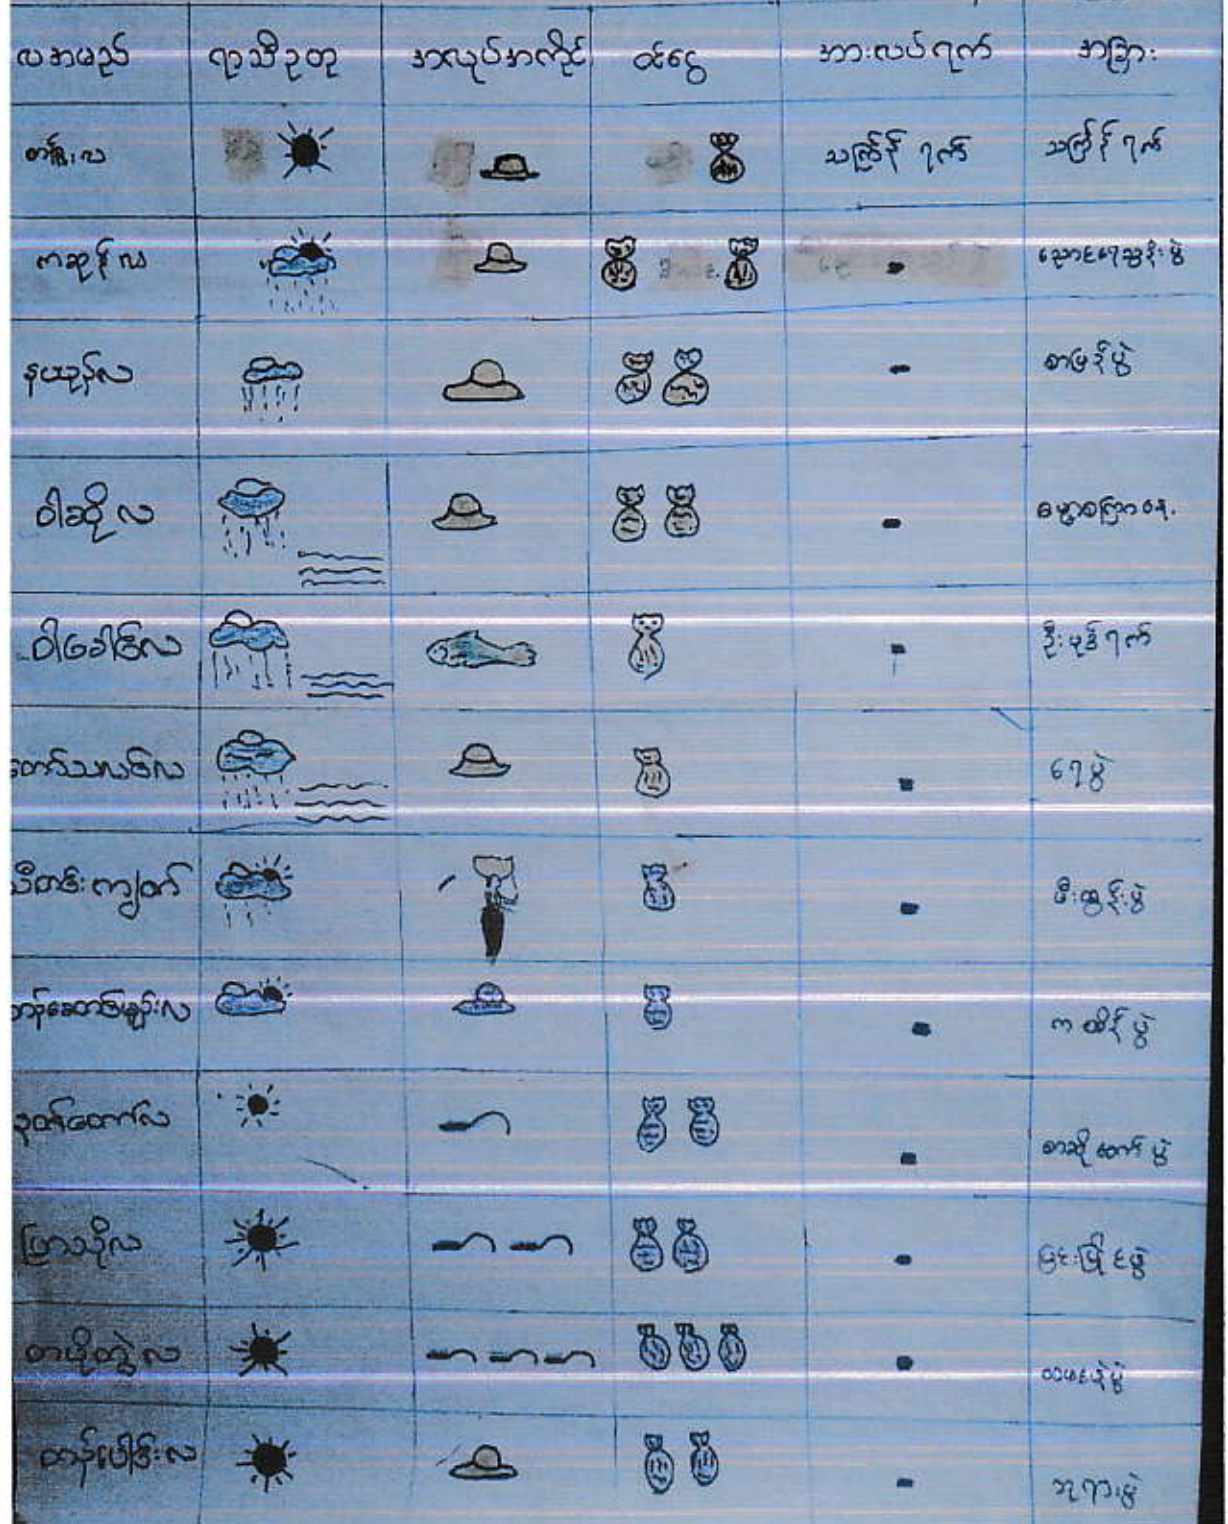 လအမည် ရာသီဥတု အလုပ်အကိုင် ဝင်ငွေ အားလပ်ရက် အခြား
တန်ခူးလ သင်္ကြန် ရက် သင်္ကြန် ရက်
ကဆုန်လ ညောင်ရေသွန်းပွဲ
နယုန်လ စာမြန်ပွဲ
ဝါဆိုလ ဓမ္မစကြာနေ့
ဝါခေါင်လ ဦးပုဒ်ရက်
တော်သလင်လ ရေပွဲ
သီတင်းကျွတ် မီးထွန်းပွဲ
တန်ဆောင်မုန်းလ ကထိန်ပွဲ
နတ်တော်လ စာဆိုတော်ပွဲ
ပြာသိုလ မြင်းပြိုင်ပွဲ
တပို့တွဲလ ထမနဲပွဲ
တပေါင်းလ ဘုရားပွဲ